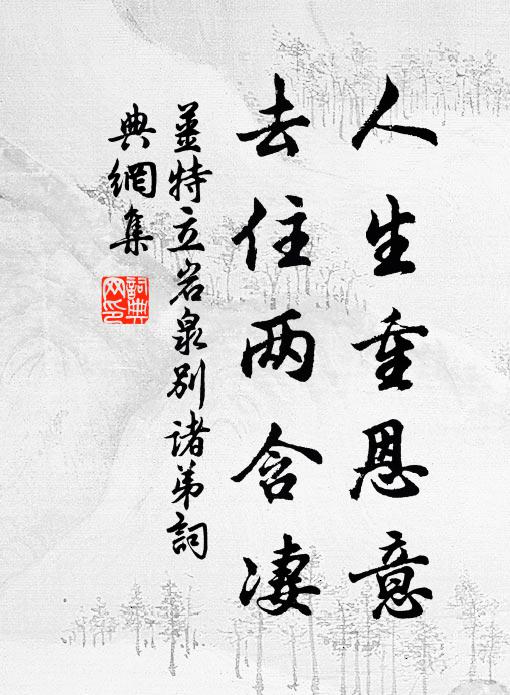 人生重恩意
去住两含凄
姜特立岩泉别诸弟詞
典網集
詞典
网印